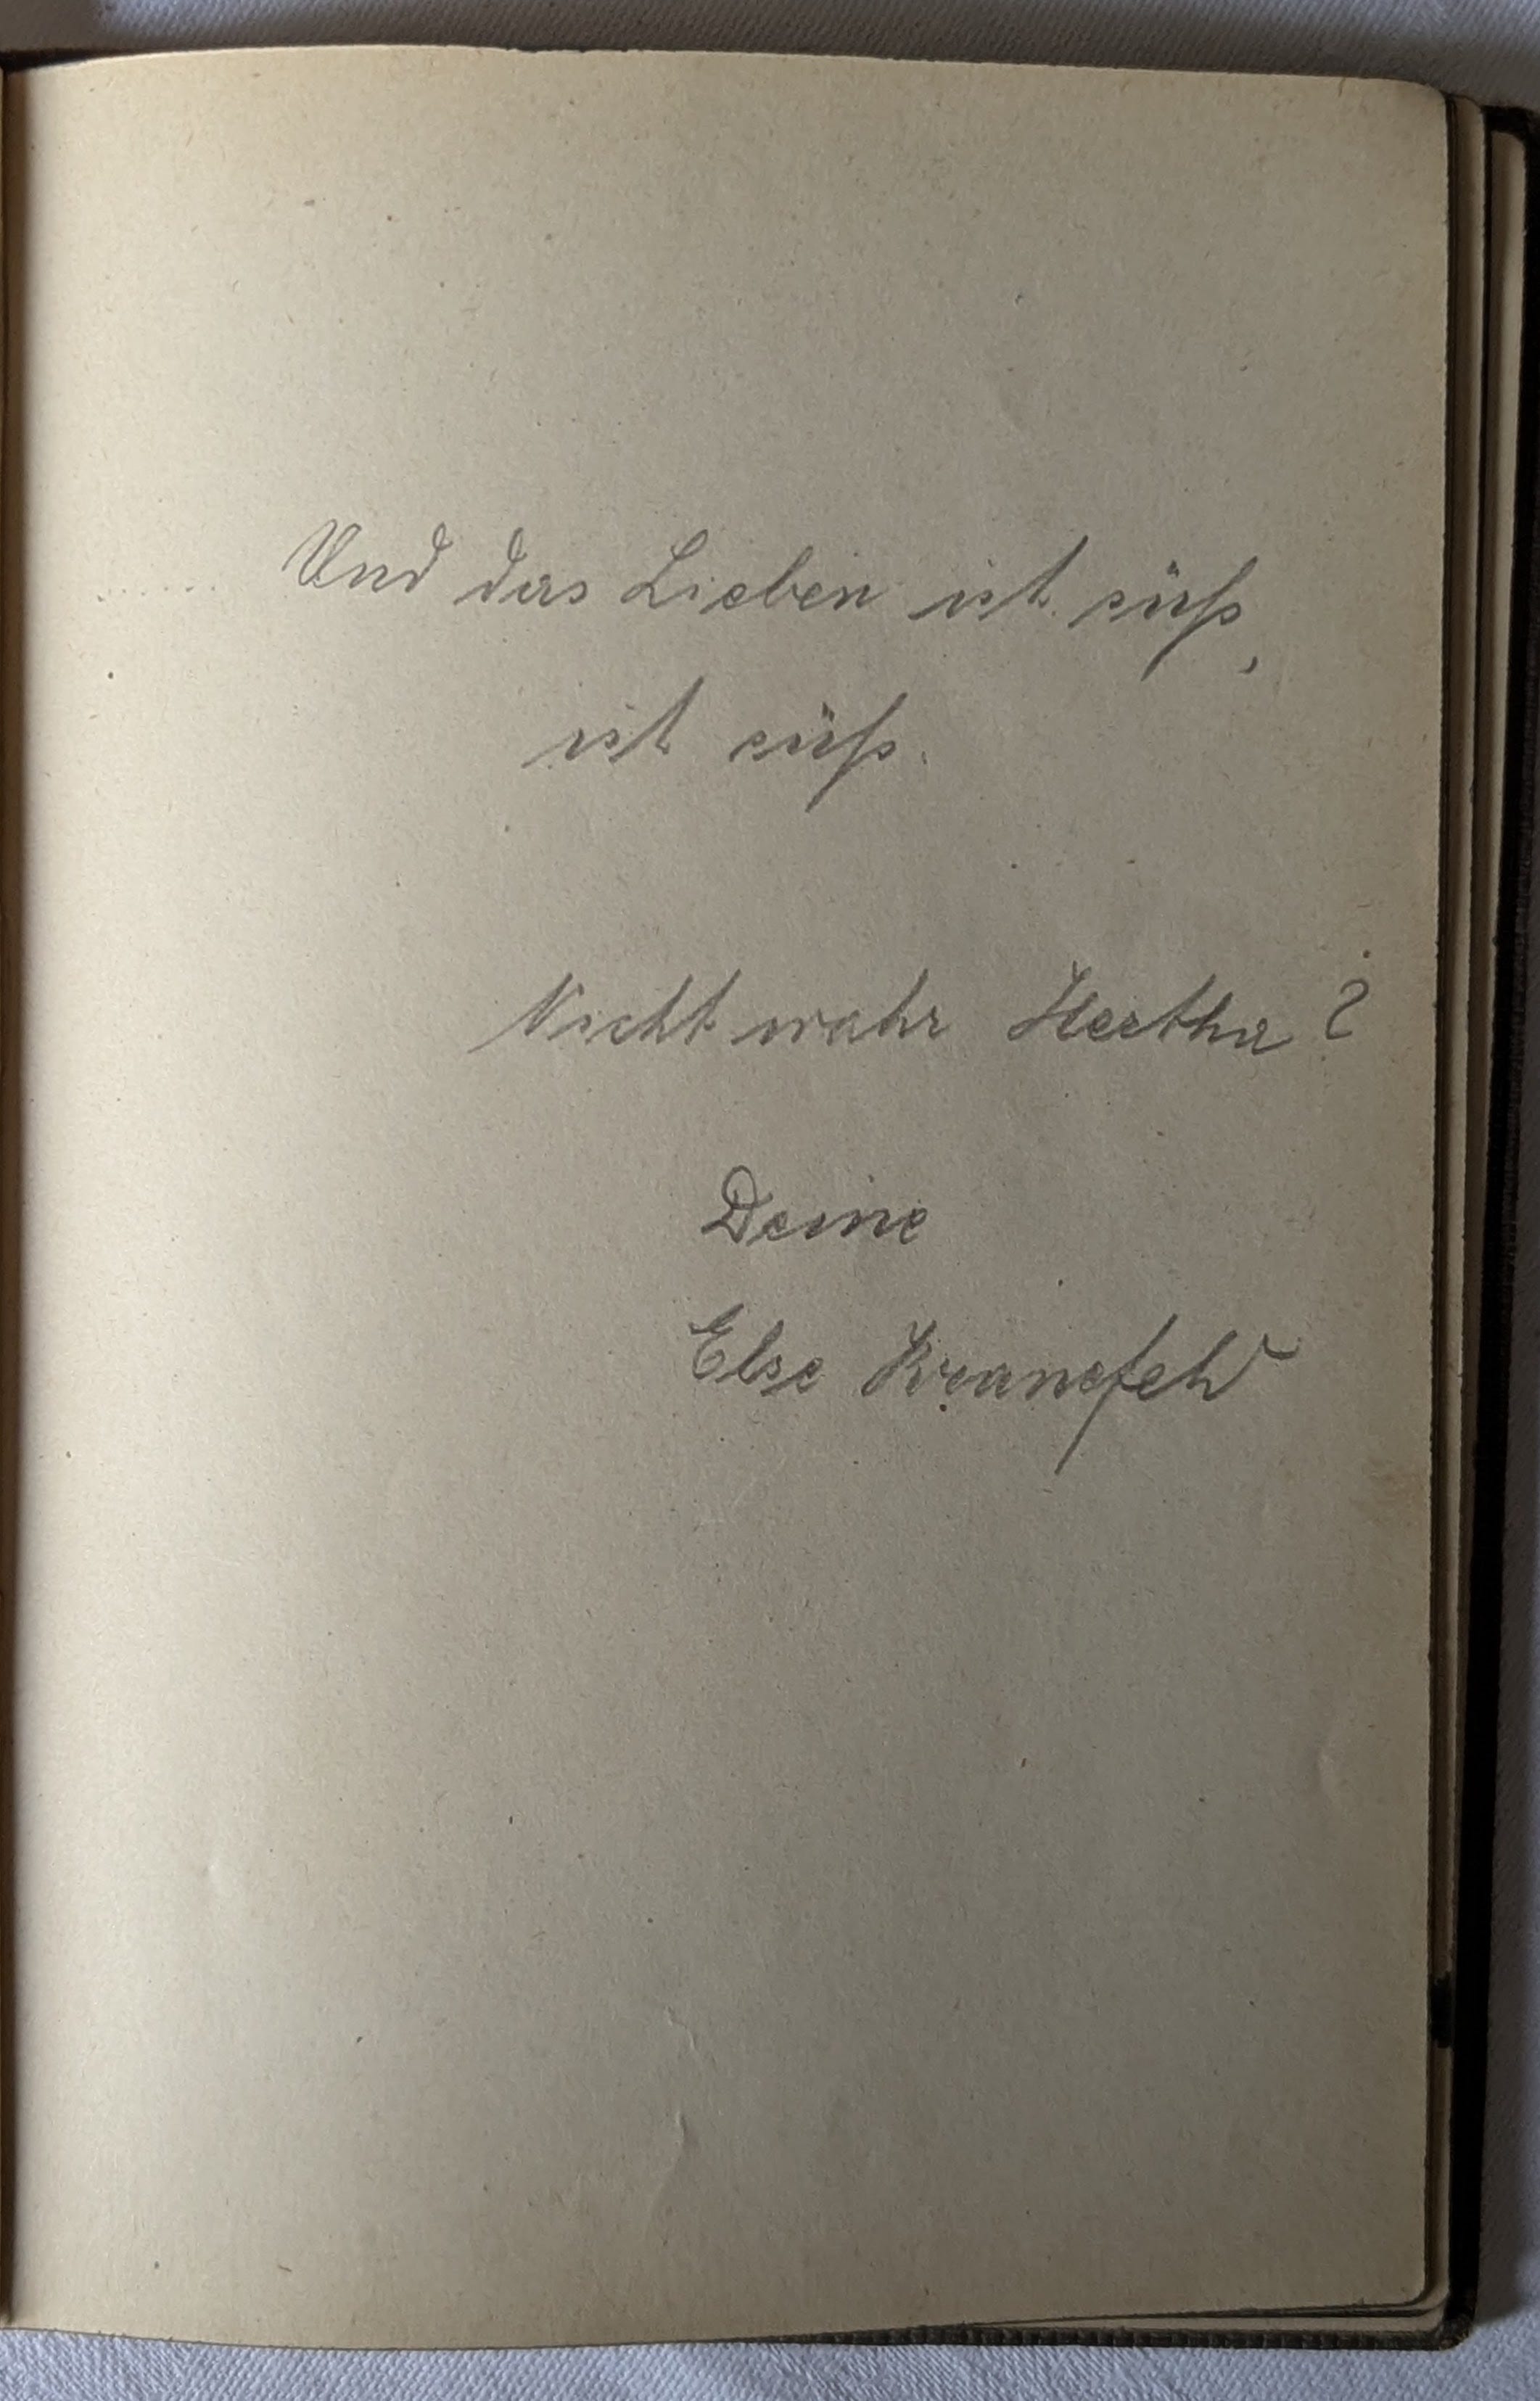 ....... Und das Lieben ist süß,
ist süß.
Nicht wahr Hertha?
Deine
Else Kranefeld